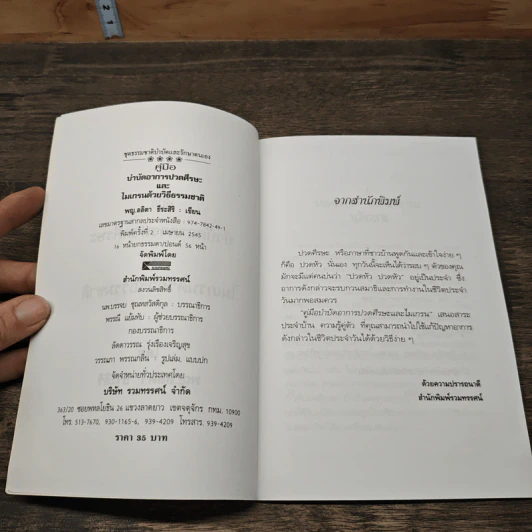 ชุดธรรมชาติบำบัดและรักษาตนเอง
คู่มือ
บำบัดอาการปวดศีรษะ
และ
ไมเกรนด้วยวิธีธรรมชาติ
พญ.ลลิตา ธีระสิริ : เขียน
เลขมาตรฐานสากลประจำหนังสือ : 974-7642-49-1
พิมพ์ครั้งที่ 2 : เมษายน 2545
16 หน้ายกธรรมดา/ปอนด์ 56 หน้า
จัดพิมพ์โดย
สำนักพิมพ์รวมทรรศน์
สงวนลิขสิทธิ์
นพ.บรรจบ ชุณหสวัสดิกุล : บรรณาธิการ
พรรณี แย้มทับ : ผู้ช่วยบรรณาธิการ
กองบรรณาธิการ
ลัดดาวรรณ รุ่งเรืองเจริญสุข
วรรณภา พรรณกลิ่น : รูปเล่ม, แบบปก
จัดจำหน่ายทั่วประเทศโดย
บริษัท รวมทรรศน์ จำกัด
363/20 ซอยพหลโยธิน 26 แขวงลาดยาว เขตจตุจักร กทม. 10900
โทร. 513-7670, 930-1165-6, 939-4209 โทรสาร. 939-4209
ราคา 35 บาท
จากสำนักพิมพ์
ปวดศีรษะ หรือภาษาที่ชาวบ้านพูดกันและเข้าใจง่าย ๆ
ก็คือ ปวดหัว นั่นเอง ทุกวันนี้จะเห็นได้ว่ารอบ ๆ ตัวของคุณ
มักจะมีแต่คนบ่นว่า "ปวดหัว ปวดหัว" อยู่เป็นประจำ ซึ่ง
อาการดังกล่าวจะรบกวนสมาธิและการทำงานในชีวิตประจำ
วันมากพอสมควร
"คู่มือบำบัดอาการปวดศีรษะและไมเกรน" เสมือน
ประจำบ้าน ความรู้คู่ตัว ที่คุณสามารถนำไปใช้แก้ปัญหาอาการ
ดังกล่าวในชีวิตประจำวันได้ด้วยวิธีง่าย ๆ
ด้วยความปรารถนาดี
สำนักพิมพ์รวมทรรศน์
1
2